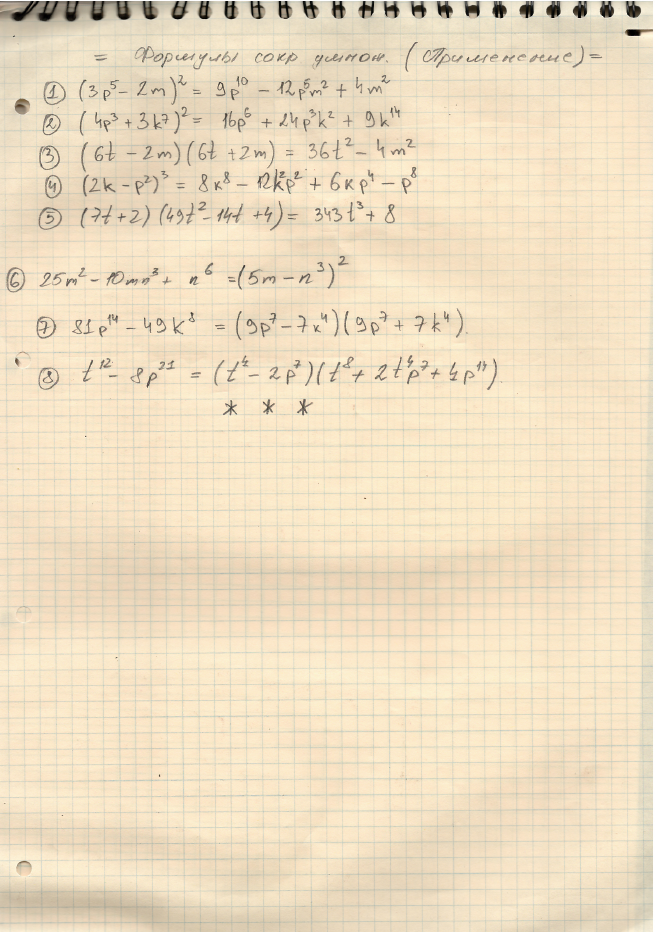 = Формулы сокр умнож. (Применение) =
① (3p⁵ - 2m)² = 9p¹⁰ - 12p⁵m² + 4m²
② (4p³ + 3k⁷)² = 16p⁶ + 24p³k² + 9k¹⁴
③ (6t - 2m)(6t + 2m) = 36t² - 4m²
④ (2k - p²)³ = 8k⁸ - 12k²p² + 6kp⁴ - p⁸
⑤ (7t + 2)(49t² - 14t + 4) = 343t³ + 8
⑥ 25m² - 10mn³ + n⁶ = (5m - n³)²
⑦ 81p¹⁴ - 49k⁸ = (9p⁷ - 7k⁴)(9p⁷ + 7k⁴)
⑧ t¹² - 8p²¹ = (t⁴ - 2p⁷)(t⁸ + 2t⁴p⁷ + 4p¹⁴).
* * *